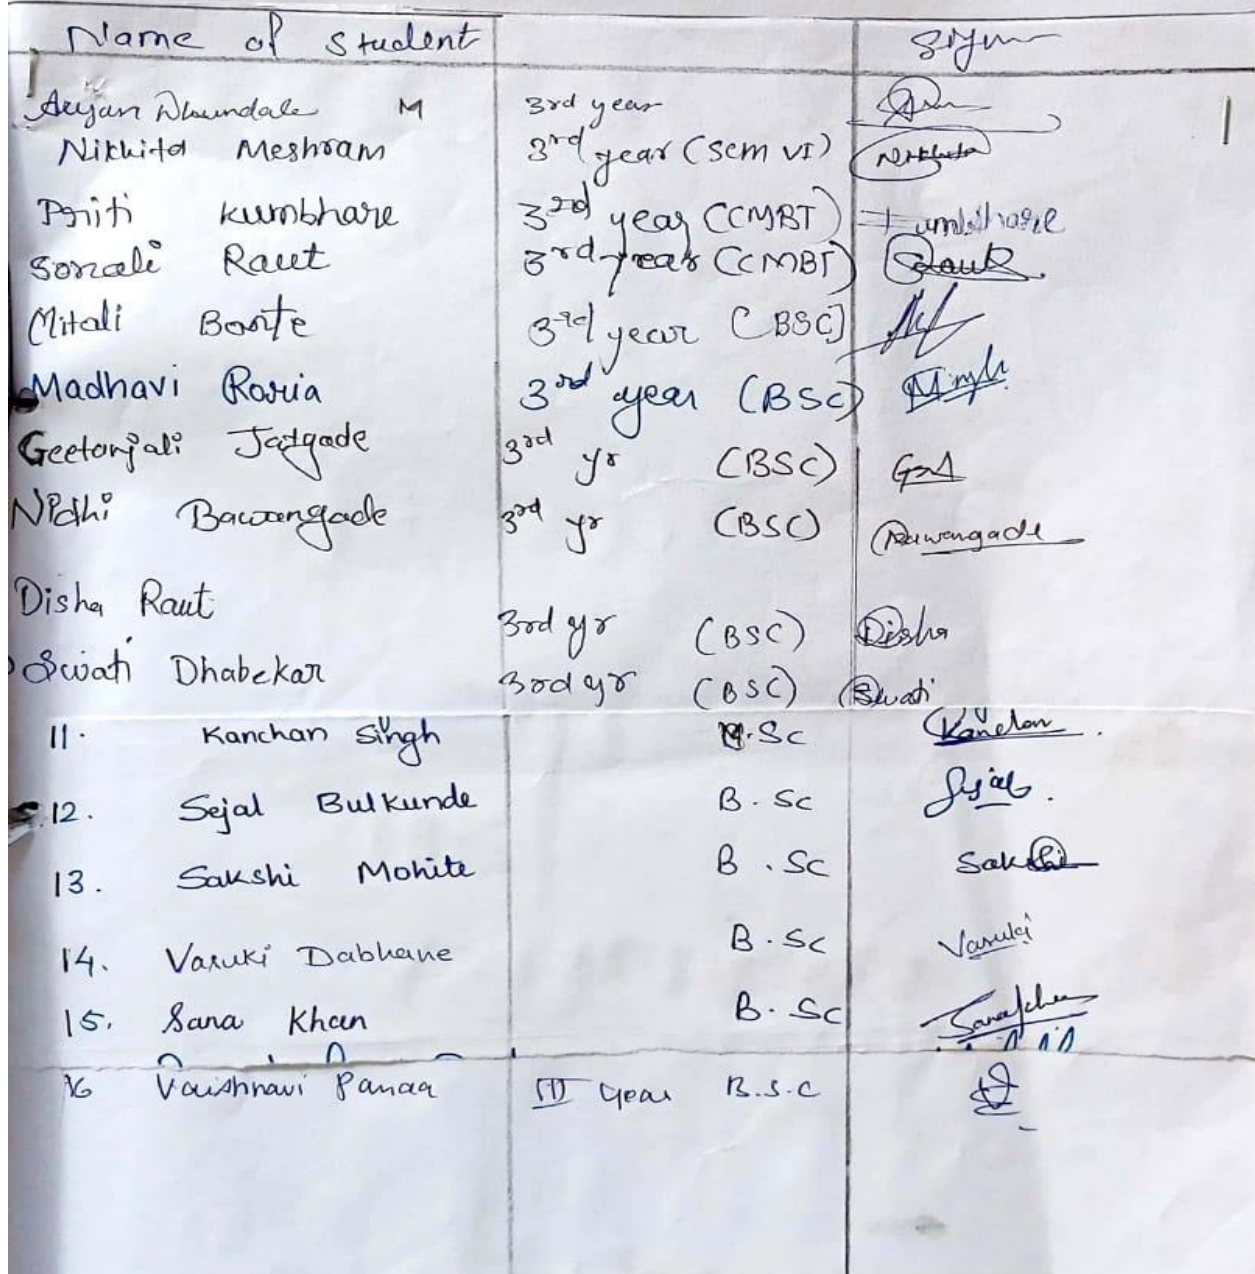 Name of Student Sign
Aryan Dhundale M 3rd year
Nikhita Meshram 3rd year (Sem VI) Nikhita
Priti Kumbhare 3rd year (CMBT) Kumbhare
Sonali Raut 3rd year (CMBT) Raut
Mitali Borte 3rd year (BSC)
Madhavi Raria 3rd year (BSC)
Geetanjali Jatgade 3rd yr (BSC)
Nidhi Bawangade 3rd yr (BSC) Bawangade
Disha Raut 3rd yr (BSC) Disha
Swati Dhabekar 3rd yr (BSC) Swati
11. Kanchan Singh M.Sc Kanchan
12. Sejal Bulkunde B.Sc Sejal
13. Sakshi Mohite B.Sc Sakshi
14. Vasuki Dabhane B.Sc Vasuki
15. Sana Khan B.Sc Sana Khan
16 Vaishnavi year B.S.C